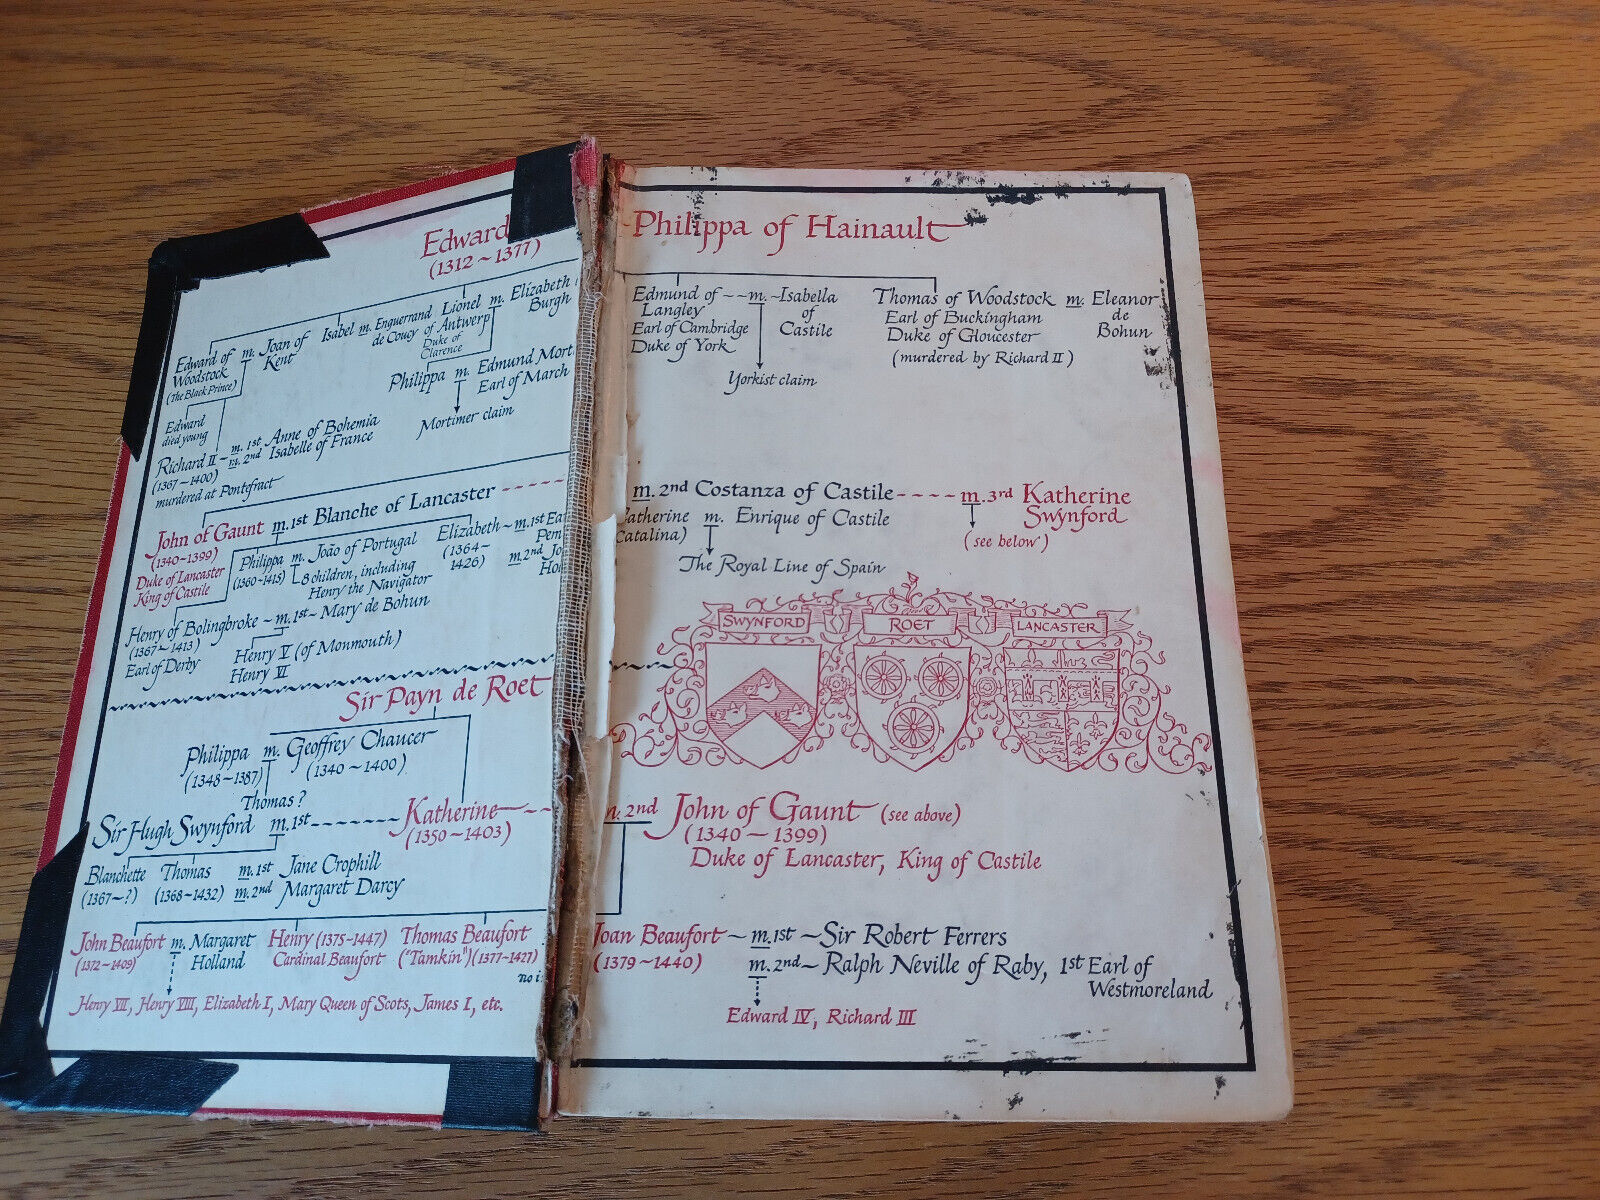 Edward
(1312~1377)
Edward of
Woodstock
(The Black Prince)
m. Joan of
Kent
Isabel m. Enguerrand
de Coucy
Lionel
of Antwerp
Duke of
Clarence
m. Elizabeth
Burgh
Edward
died young
Philippa m. Edmund
Earl of March
Mortimer claim
Richard II ~ m. 1st Anne of Bohemia
(1367~1400) m. 2nd Isabelle of France
murdered at Pontefract
John of Gaunt m. 1st Blanche of Lancaster
(1340~1399)
Duke of Lancaster
King of Castile
Philippa m. João of Portugal
(1360~1415) 8 children, including
Henry the Navigator
Elizabeth ~ m. 1st
(1364~
1426)
m. 2nd
Henry of Bolingbroke ~ m. 1st ~ Mary de Bohun
(1367~1413)
Earl of Derby
Henry V (of Monmouth)
Henry VI
Sir Payn de Roet
Philippa m. Geoffrey Chaucer
(1348~1387) (1340~1400)
Thomas?
Sir Hugh Swynford m. 1st Katherine
(1350~1403)
Blanchette Thomas m. 1st Jane Crophill
(1367~?) (1368~1432) m. 2nd Margaret Darcy
John Beaufort m. Margaret
(1372~1409) Holland
Henry (1375~1447)
Cardinal Beaufort
Thomas Beaufort
("Tamkin") (1377~1427)
no
Henry VII, Henry VIII, Elizabeth I, Mary Queen of Scots, James I, etc.
Philippa of Hainault
Edmund of ~ m. ~ Isabella
Langley of
Earl of Cambridge Castile
Duke of York
Yorkist claim
Thomas of Woodstock m. Eleanor
Earl of Buckingham de
Duke of Gloucester Bohun
(murdered by Richard II)
m. 2nd Costanza of Castile m. 3rd Katherine
Swynford
(see below)
Catherine m. Enrique of Castile
Catalina)
The Royal Line of Spain
SWYNFORD ROET LANCASTER
m. 2nd John of Gaunt (see above)
(1340~1399)
Duke of Lancaster, King of Castile
Joan Beaufort ~ m. 1st ~ Sir Robert Ferrers
(1379~1440) m. 2nd ~ Ralph Neville of Raby, 1st Earl of
Westmoreland
Edward IV, Richard III